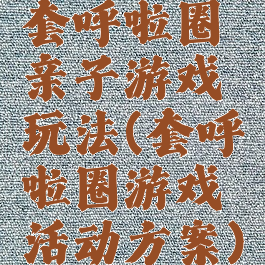 套呼啦圈
亲子游戏
玩法(套呼
啦圈游戏
活动方案)